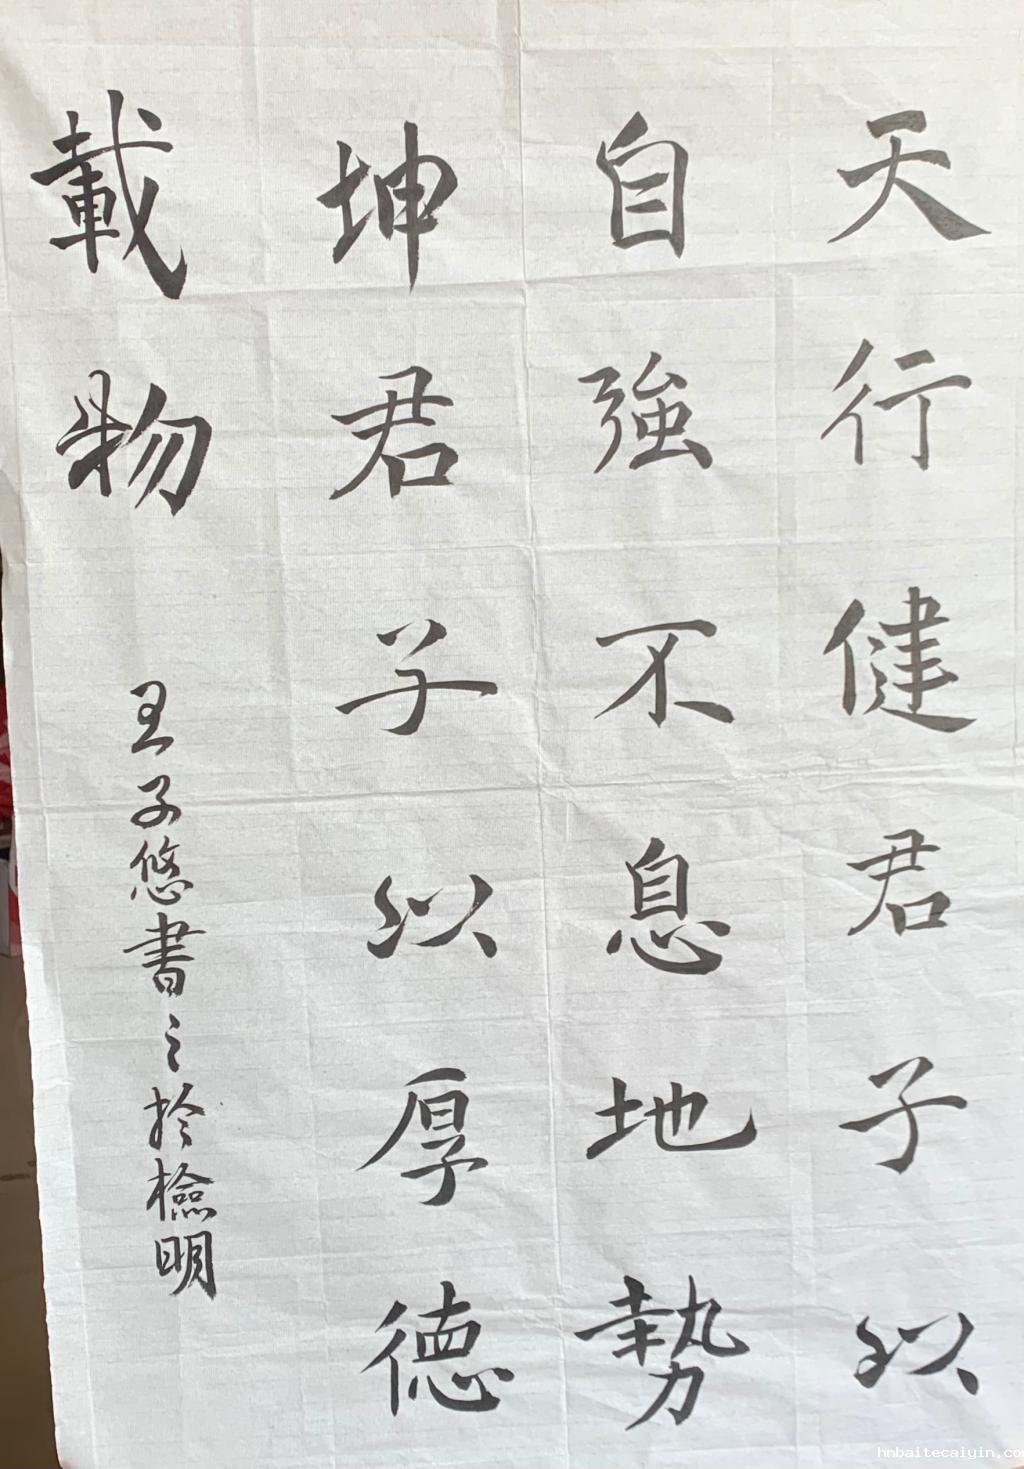 天行健君子以
自強不息地勢
坤君子以厚德
載物
王子悠書之於檢明
hnbaitecaiyin.co